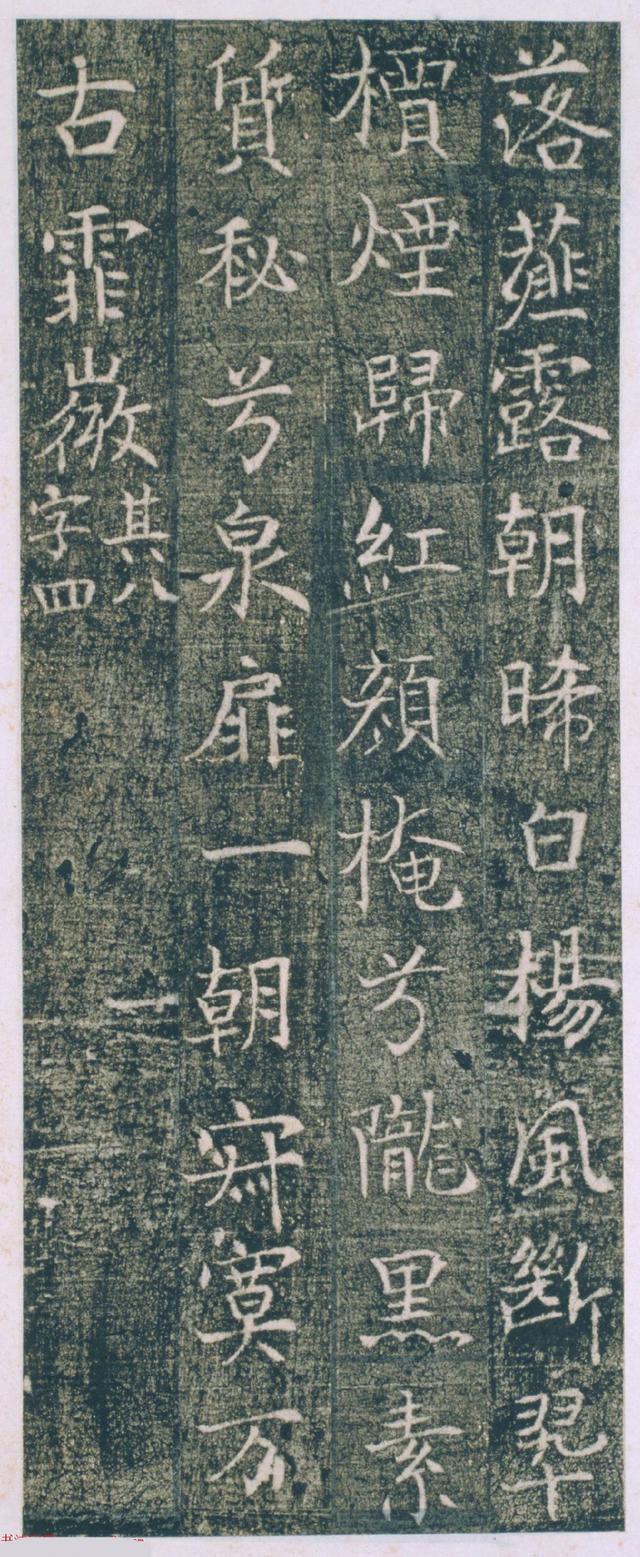 落薤露朝晞白楊風斷翠
檟煙歸紅顏掩兮隴黑素
質秘兮泉扉一朝寂寞万
古霏微其八
字四